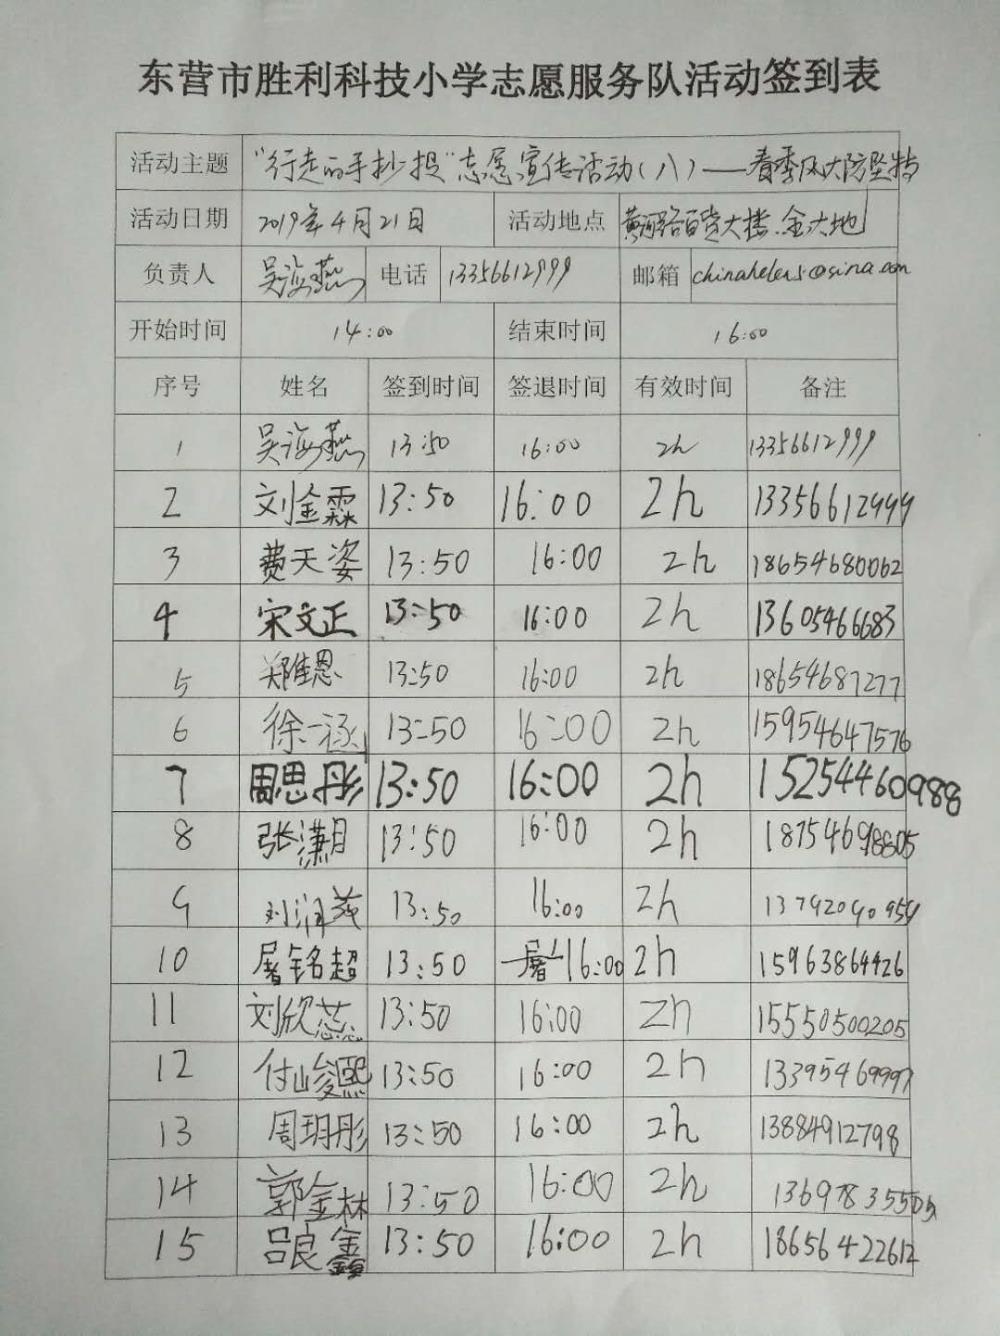 东营市胜利科技小学志愿服务队活动签到表
活动主题 “行走的手抄报”志愿宣传活动（八）——春季风大防坠物
活动日期 2019年4月21日 活动地点 黄河路百货大楼.金大地
负责人 吴海燕 电话 13356612999 邮箱
开始时间 14:00 结束时间 16:00
序号 姓名 签到时间 签退时间 有效时间 备注
1 吴海燕 13:50 16:00 2h 13356612999
2 刘金霖 13:50 16:00 2h 13356612999
3 费天姿 13:50 16:00 2h 18654680062
4 宋文正 13:50 16:00 2h 13605466683
5 郑佳恩 13:50 16:00 2h 18654687277
6 徐一涵 13:50 16:00 2h 15954647576
7 周思彤 13:50 16:00 2h 15254460988
8 张潇月 13:50 16:00 2h 18754698805
9 刘润 13:50 16:00 2h 13792040959
10 屠铭超 13:50 16:00 2h 15963864426
11 刘欣蕊 13:50 16:00 2h 15550500205
12 付峻熙 13:50 16:00 2h 13395469997
13 周玥彤 13:50 16:00 2h 13884912798
14 郭金林 13:50 16:00 2h 13697835505
15 吕良鑫 13:50 16:00 2h 18656422612